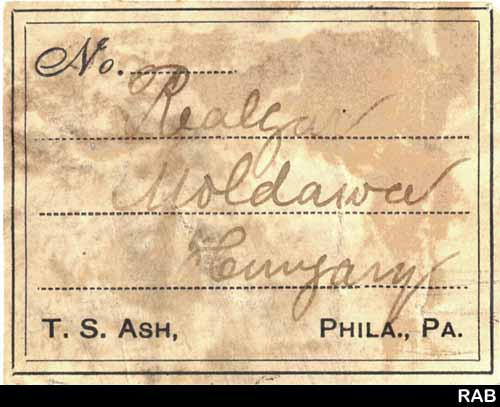 No.
Realgar
Moldawa
Hungary
T. S. ASH, PHILA., PA.
RAB